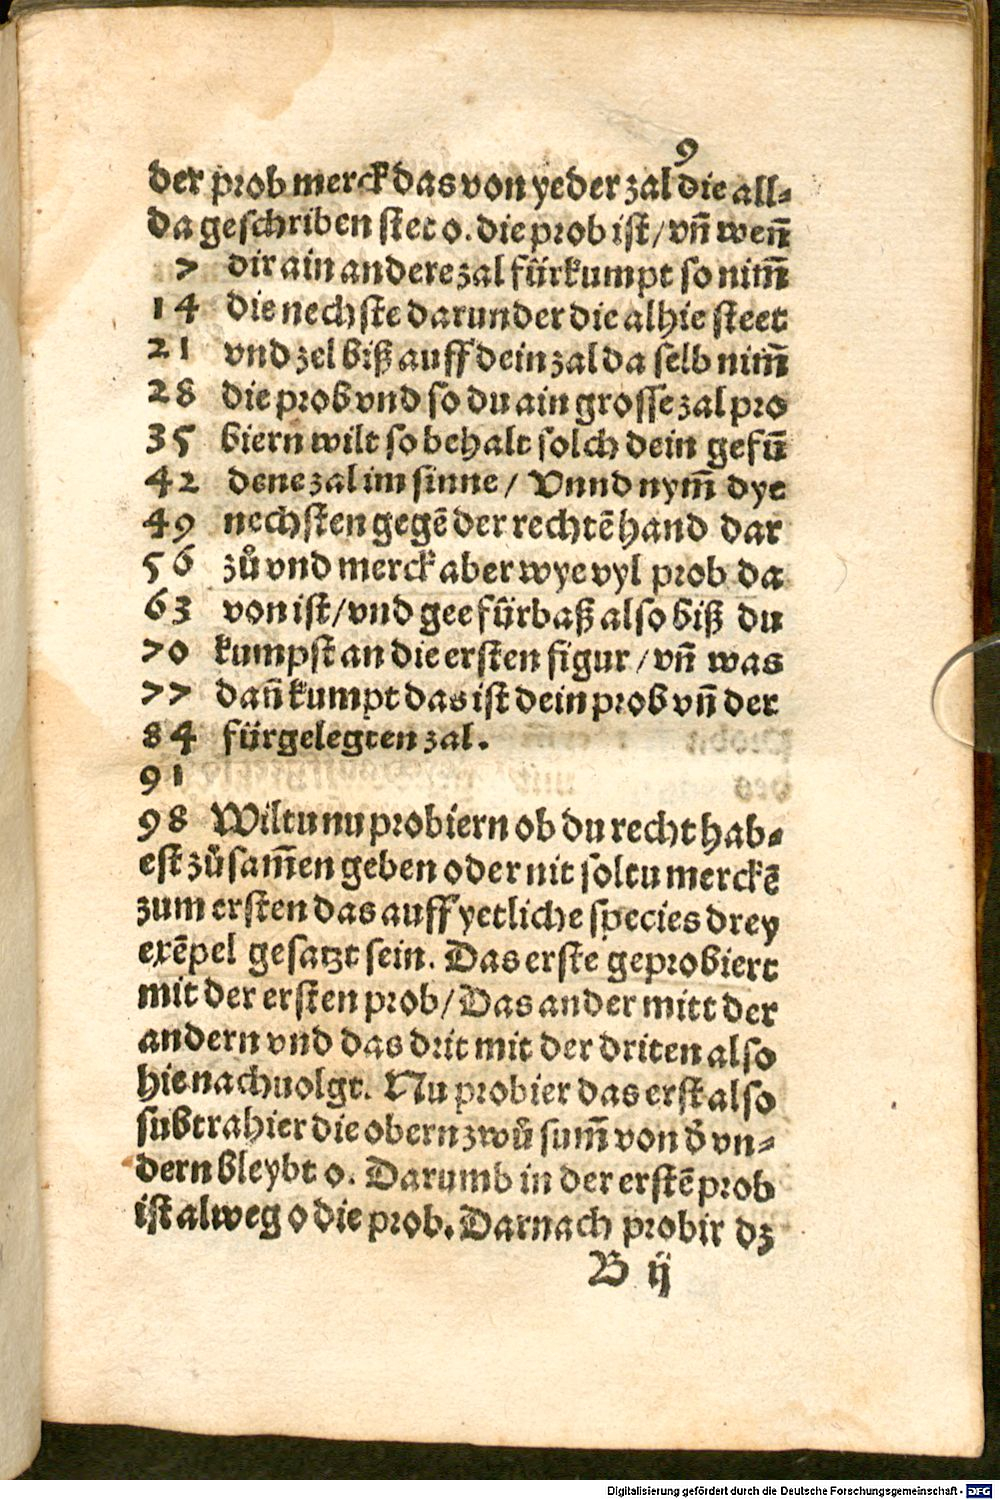 9
der prob merck das von yeder zal die all⸗
da geschriben stet o. die prob ist / vn̄ wen̄
7 dir ain andere zal fürkumpt so nim̄
14 die nechste darunder die alhie steet
21 vnd zel biß auff dein zal da selb nim̄
28 die prob vnd so du ain grosse zal pro
35 biern wilt so behalt solch dein gefū
42 dene zal im sinne / Vnnd nym̄ dye
49 nechsten gegē der rechtē hand dar
56 zů vnd merck aber wye vyl prob da
63 von ist / vnd gee fürbaß also biß du
70 kumpst an die ersten figur / vn̄ was
77 dan̄ kumpt das ist dein prob vn̄ der
84 fürgelegten zal.
91
98 Wiltu nu probiern ob du recht hab⸗
est zůsam̄en geben oder nit soltu merckē
zum ersten das auff yetliche species drey
exēpel gesatzt sein. Das erste geprobiert
mit der ersten prob / Das ander mitt der
andern vnd das drit mit der driten also
hie nachuolgt. Nu probier das erst also
subtrahier die obern zwů sum̄ von d̄ vn⸗
dern bleybt o. Darumb in der erstē prob
ist alweg o die prob. Darnach probir dz
B ij
Digitalisierung gefördert durch die Deutsche Forschungsgemeinschaft - DFG